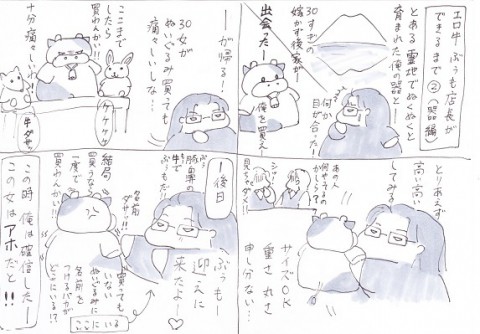 エロ牛ぶぅも店長が
できるまで②(器編)
とある霊地でぬくぬくと
育まれた俺の器と
30すぎの
嫁かず後家が
出会った
何か
目が合った!
俺を買え
とりあえず
高い高い
してみる
あの人
何やってるの
かしら??
シッ!
見ちゃダメ!!
サイズOK
重さ、丸さ
申し分ない…
ーが帰る!
30女が
ぬいぐるみ買っても
痛々しいしな…
ここまで
したら
買わんかい!!
十分痛々しいわ!!
ケケケッ
牛ダセッ
ー後日
ぶぅもー
迎えに
来たよー♡
牛で
ぶぅもだ!!
名前
ダサッ!!
結局
買うなら
一度で
買わんかい!!
買っても
いない
ぬいぐるみに
名前を
つけるバカが
どこにいる!?
ここにいる
この時俺は確信したー
この女はアホだと!!